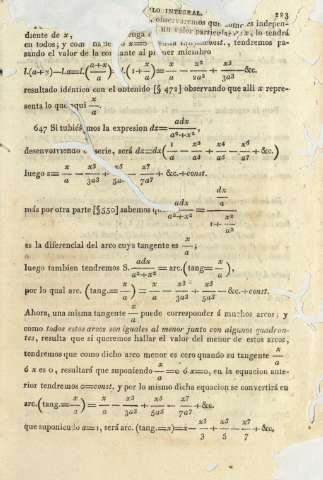 LO INTEGRAL. 223
observaremos que es indepen-
diente de x, un valor particular x, lo tendrá
en todos; y com x=0 const., tendremos pa-
sando el valor de la co ante al primer miembro
l.(a+x)—l.a=l.(a+x/a) l.(1+x/a)=x/a—x2/2a2+x3/3a3—&c.
resultado idéntico con el obtenido [§ 472] observando que allí x repre-
senta lo que aqui x/a.
647 Si tubié mos la expresion dz=adx/a2+x2,
desenvolviendo serie, será dz=dx(1/a—x2/a3+x4/a5—x6/a7+&c.)
luego z=x/a—x3/3a3+x5/5a5—x7/7a7+&c.+const.
más por otra parte [§550] sabemos qu adx/a2+x2=dx/a/1+x2/a2
es la diferencial del arco cuya tangente es x/a;
luego tambien tendremos S.adx/a2+x2=arc.(tang=x/a),
por lo qual arc.(tang.=x/a)=x/a—x3/3a3+x5/5a5—&c.+const.
Ahora, una misma tangente x/a puede corresponder á muchos arcos; y
como todos estos arcos son iguales al menor junto con algunos quadran-
tes, resulta que si queremos hallar el valor del menor de estos arcos,
tendremos que como dicho arco menor es cero quando su tangente x/a
ó x es 0, resultará que suponiendo x/a=0 ó x=0, en la equacion ante-
rior tendremos 0=const. y por lo mismo dicha equacion se convertirá en
arc.(tang.=x/a)=x/a—x3/3a3+x5/5a5—x7/7a7+&c.
que suponiendo a=1, será arc.(tang.=x)=x—x3/3+x5/5—x7/7+&c.